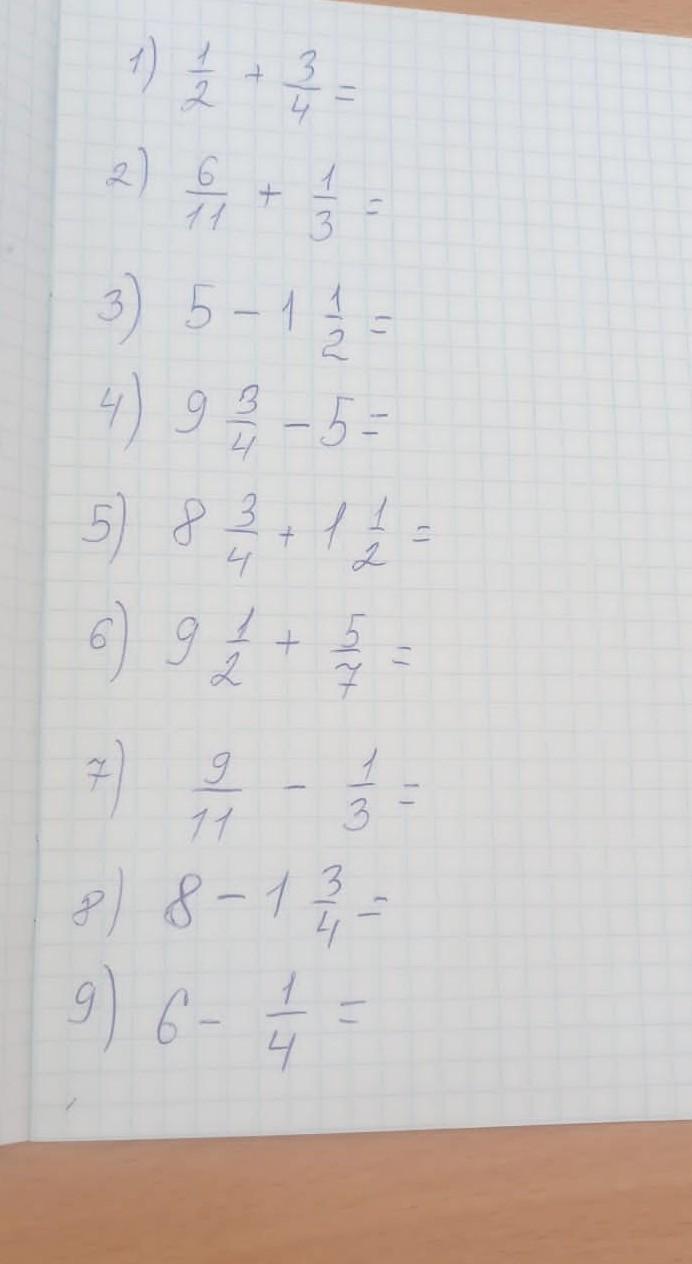 1) 1/2 + 3/4 =
2) 6/11 + 1/3 =
3) 5 - 1 1/2 =
4) 9 3/4 - 5 =
5) 8 3/4 + 1 1/2 =
6) 9 1/2 + 5/7 =
7) 9/11 - 1/3 =
8) 8 - 1 3/4 =
9) 6 - 1/4 =